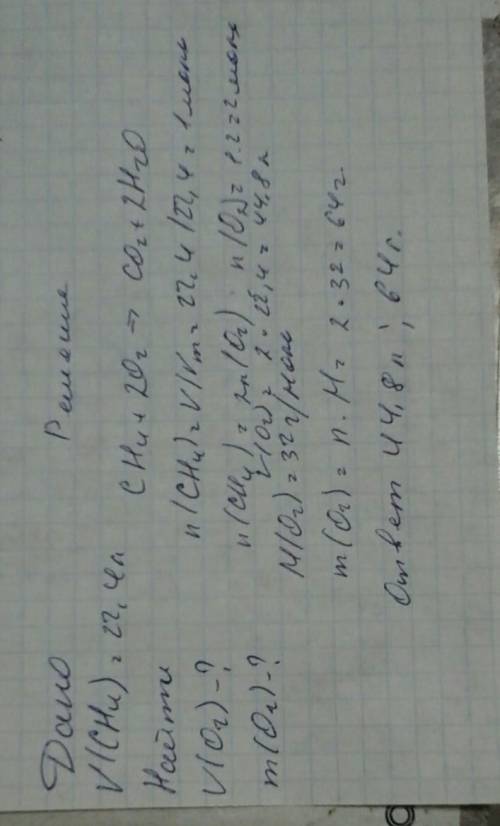 Дано
V(CH4) = 22,4л
Найти
V(O2)-?
m(O2)-?
Решение
CH4 + 2O2 => CO2 + 2H2O
n(CH4) = V/Vm = 22,4/22,4 = 1моль
n(CH4) = 2n(O2); n(O2) = 1·2 = 2моль
V(O2) = 2·22,4 = 44,8л
M(O2) = 32г/моль
m(O2) = n·M = 2·32 = 64г.
Ответ 44,8л; 64г.